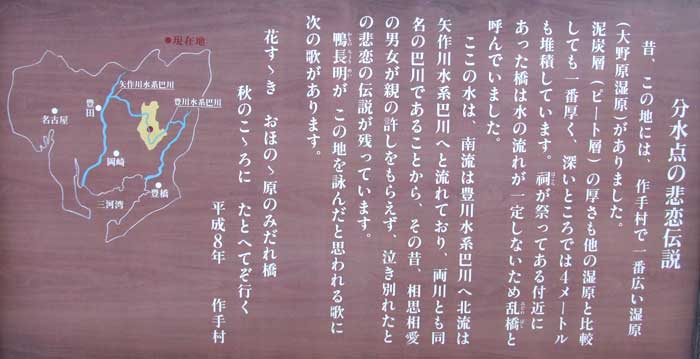 分水点の悲恋伝説
昔、この地には、作手村で一番広い湿原
(大野原湿原)がありました。
泥炭層(ピート層)の厚さも他の湿原と比較
しても一番厚く、深いところでは4メートル
も堆積しています。祠が祭ってある付近に
ほこら
あった橋は水の流れが一定しないため乱橋と
みだればし
呼んでいました。
ここの水は、南流は豊川水系巴川へ北流は
矢作川水系巴川へと流れており、両川とも同
名の巴川であることから、その昔、相思相愛
の男女が親の許しをもらえず、泣き別れたと
の悲恋の伝説が残っています。
鴨長明が この地を詠んだと思われる歌に
かものちょうめい
次の歌があります。
花すゝき おほのゝ原のみだれ橋
秋のこゝろに たとへてぞ行く
平成8年 作手村
●現在地
矢作川水系巴川
豊川水系巴川
名古屋
豊田
岡崎
豊橋
三河湾